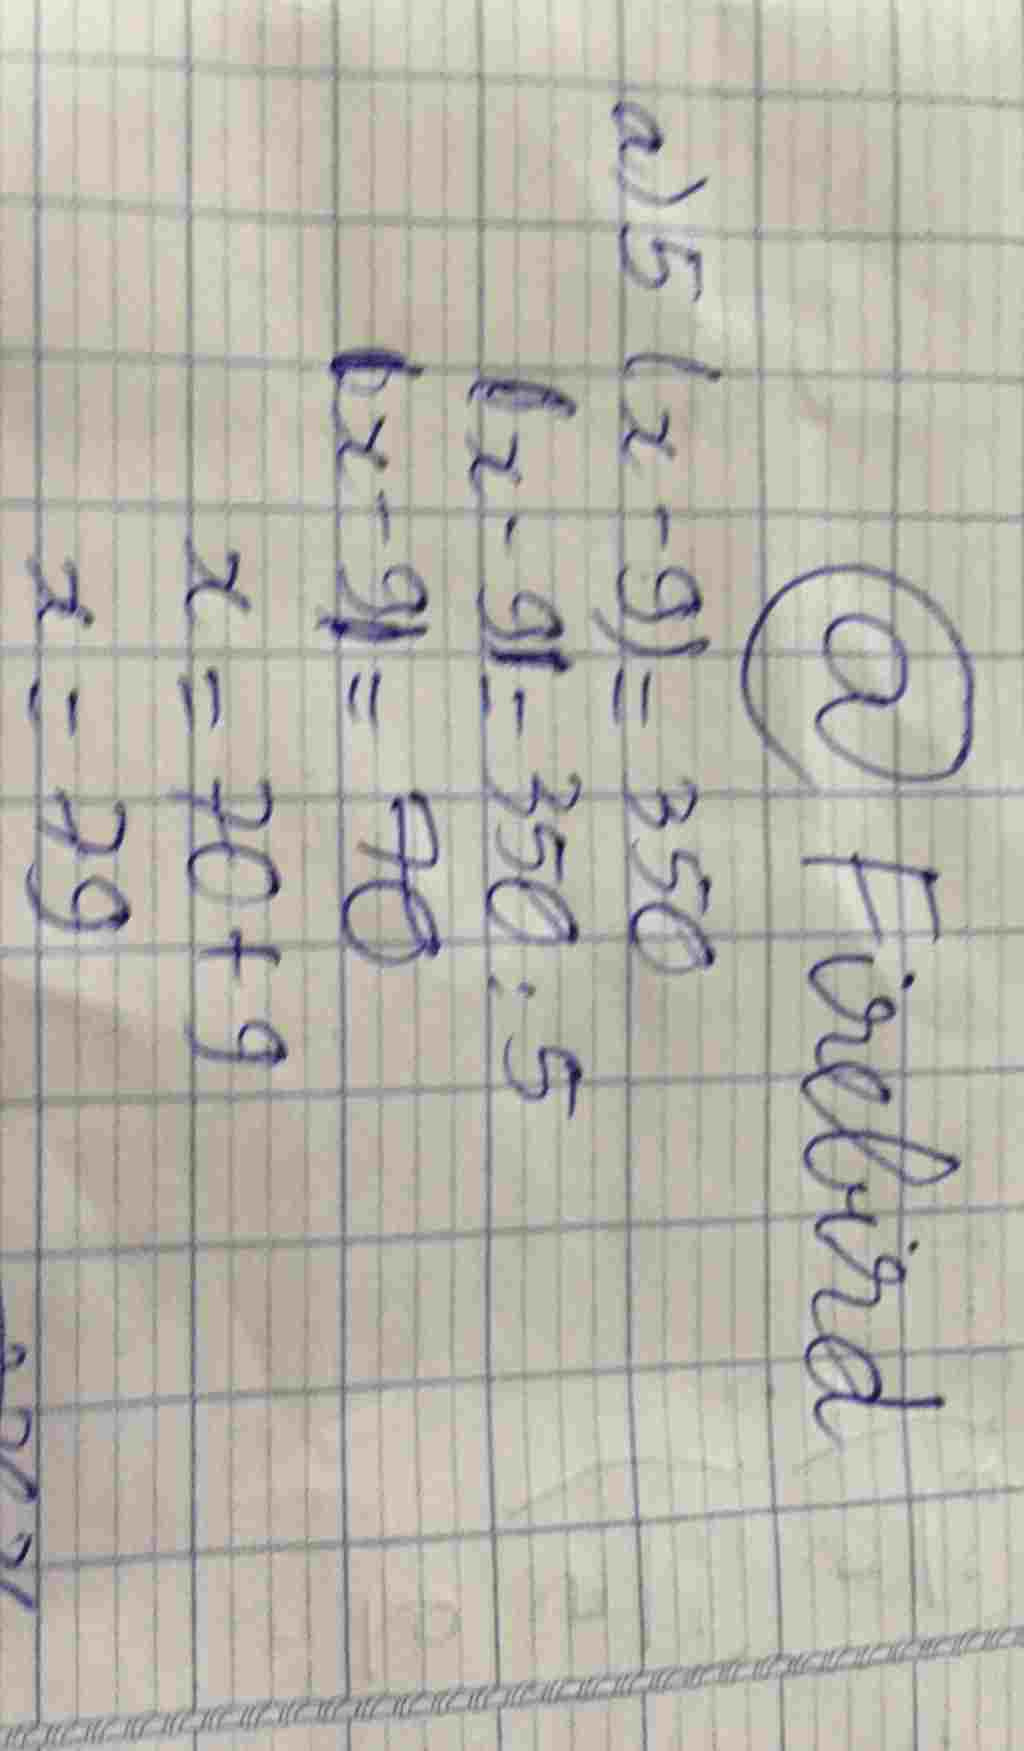 @ Firebird
a) 5 (x - 9) = 350
x - 9 = 350 : 5
x - 9 = 70
x = 70 + 9
x = 79